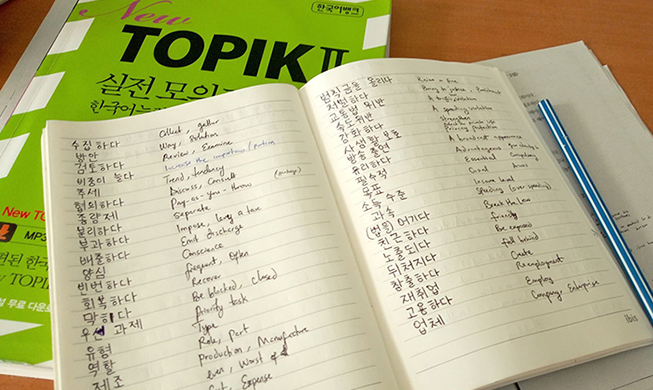 New
한국어뱅크
TOPIK II
실전 모의
한국어능
New TO
MP3
수집하다 Collect, gather
방안 Way, Solution
검토하다 Review, Examine
비중이 높다 Increase the importance/
추세 Trend, tendency
협의하다 Discuss, Consult
종량제 Pay-as-you-throw (Garbage)
분리하다 Separate
부과하다 Impose, levy a tax
배출하다 Emit discharge
양심 Conscience
빈번하다 Frequent, Often
회복하다 Recover
막히다 Be blocked, closed
우선 과제 Priority task
유형 Type
역할 Role, Part
제조 Production, Manufacture
Cost, Expense
범칙금을 물리다 Raise a fine
처벌하다 Bring to justice
교통법 위반 A traffic violation
속도위반 A speeding violation
강화하다 Strengthen
사생활 보호 Privacy protection
방송 출연 A broadcast appearance
유리하다 Advantageous
필수적 Essential
목표 Goal
소득 수준 Income level
과속 Speeding (over speeding)
(법을) 어기다 Break the Law
친근하다 friendly
노출되다 Be exposed
뒤처지다 fall behind
창출하다 Create
재취업 Re-employment
고용하다 Employ
업체 Company, Enterprise
ibis